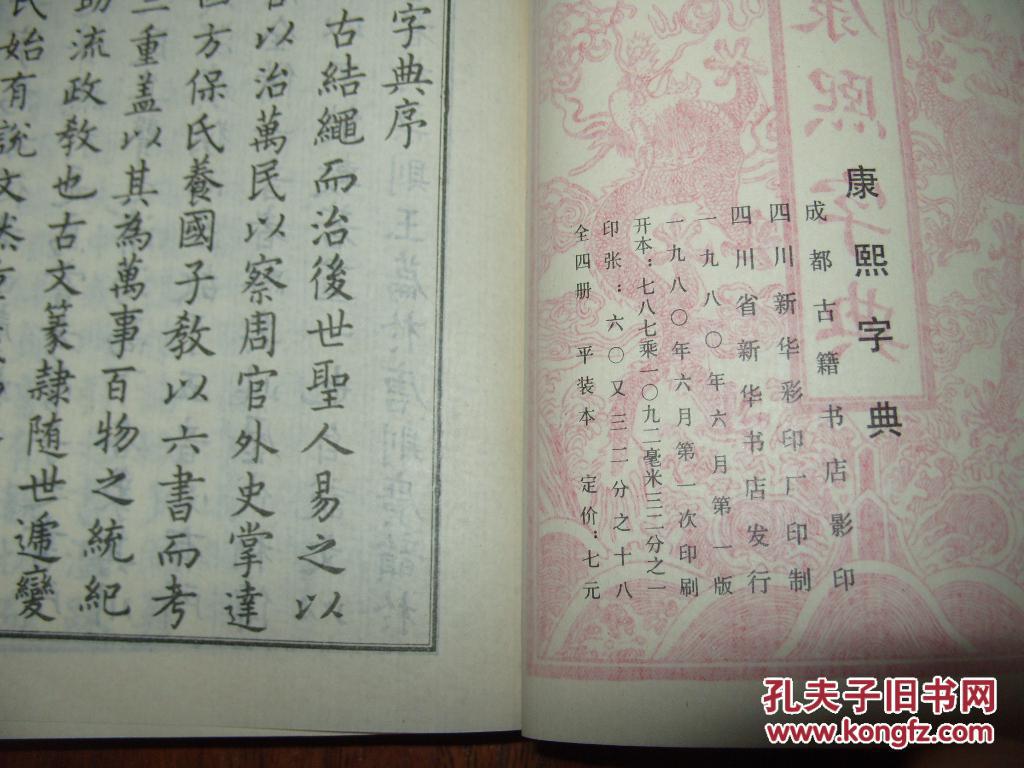 康熙字典
康熙字典
成都古籍书店影印
四川新华彩印厂印制
四川省新华书店发行
一九八〇年六月第一版
一九八〇年六月第一次印刷
开本：七八七乘一〇九二毫米三二分之一
印张：六〇又三二分之十八
全四册 平装本 定价：七元
字典序
古結繩而治後世聖人易之以
以治萬民以察周官外史掌達
四方保氏養國子教以六書而考
重盖以其為萬事百物之統紀
助流政教也古文篆隸随世遞變
氏始有說文然
孔夫子旧书网
www.kongfz.com